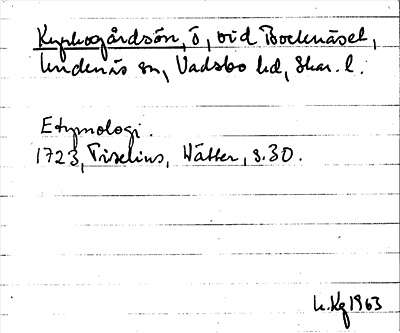 Kyrkogårdsön, ö, vid Bocknäset,
Undenäs sn, Vadsbo hd, Skar. l.
Etymologi.
1723, Tiselius, Wätter, s.30.
L.Kg 1963